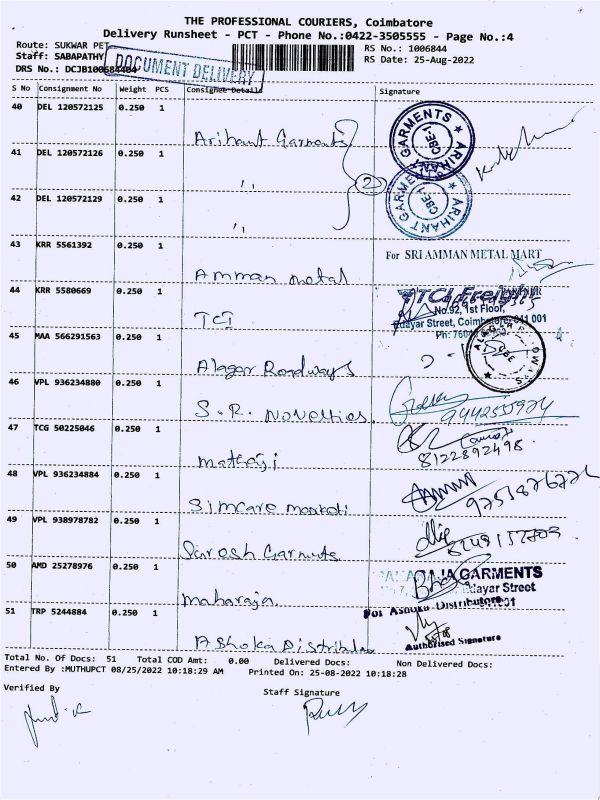 THE PROFESSIONAL COURIERS, Coimbatore
Delivery Runsheet - PCT - Phone No.:0422-3505555 - Page No.:4
Route: SUKWAR PET
RS No.: 1006844
Staff: SABAPATHY
RS Date: 25-Aug-2022
DRS No.: DCJB100684404
DOCUMENT DELIVERY
S No Consignment No Weight PCS Consignee Details Signature
40 DEL 120572125 0.250 1 Arihant Garments
ARIHANT GARMENTS CBE-1
41 DEL 120572126 0.250 1 ,,
2
42 DEL 120572129 0.250 1 ,,
ARIHANT GARMENTS CBE-1
43 KRR 5561392 0.250 1 Amman metal
For SRI AMMAN METAL MART
44 KRR 5580669 0.250 1 TCI
TCI Freight
No.92, 1st Floor,
Udayar Street, Coimbatore-641 001
45 MAA 566291563 0.250 1 Alagar Roadways
46 VPL 936234880 0.250 1 S.R. Novelties.
47 TCG 50225046 0.250 1
8122892498.
48 VPL 936234884 0.250 1 Simcare
49 VPL 938978782 0.250 1
50 AMD 25278976 0.250 1 maharaja
RAJA GARMENTS
Udayar Street
51 TRP 5244884 0.250 1
For Ashoka Distributors
Authorised Signature
Total No. Of Docs: 51 Total COD Amt: 0.00 Delivered Docs: Non Delivered Docs:
Entered By :MUTHUPCT 08/25/2022 10:18:29 AM Printed On: 25-08-2022 10:18:28
Verified By
Staff Signature